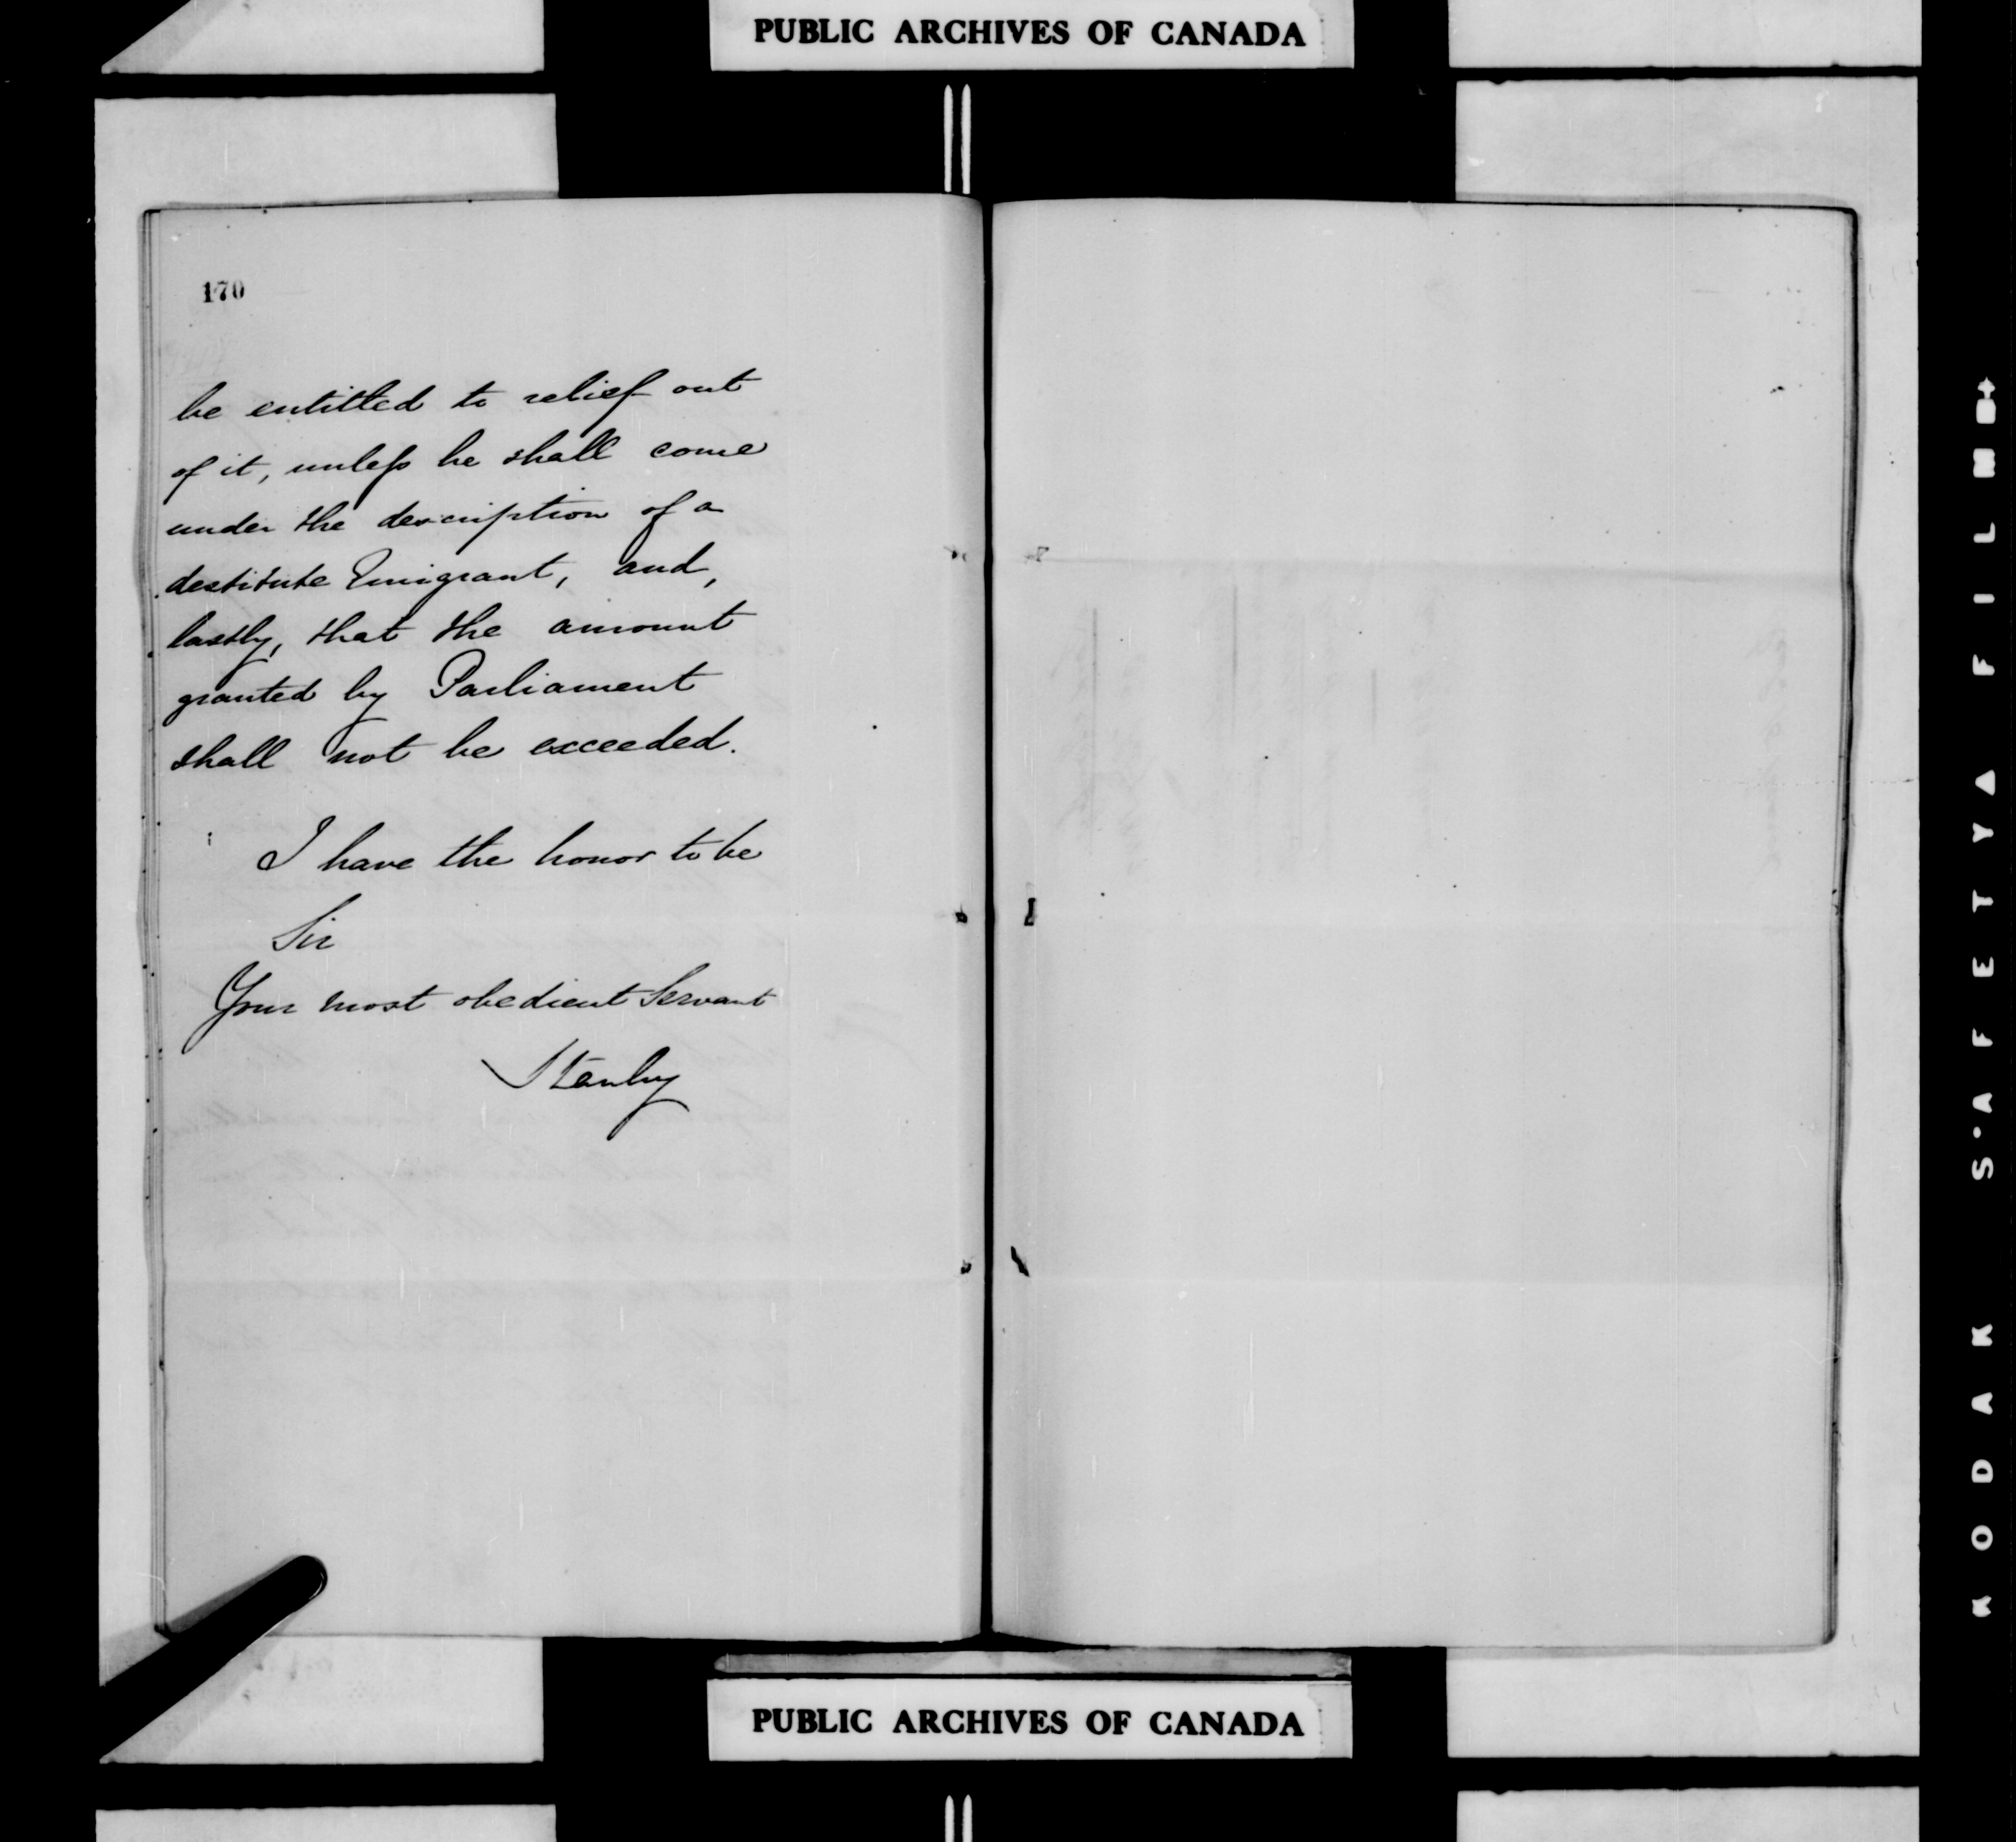 PUBLIC ARCHIVES OF CANADA
170
be entitled to relief out
of it, unless he shall come
under the description of a
destitute Emigrant, and,
lastly, that the amount
granted by Parliament
shall not be exceeded.
I have the honor to be
Sir
Your most obedient Servant
Stanley
PUBLIC ARCHIVES OF CANADA
KODAK SAFETY FILM